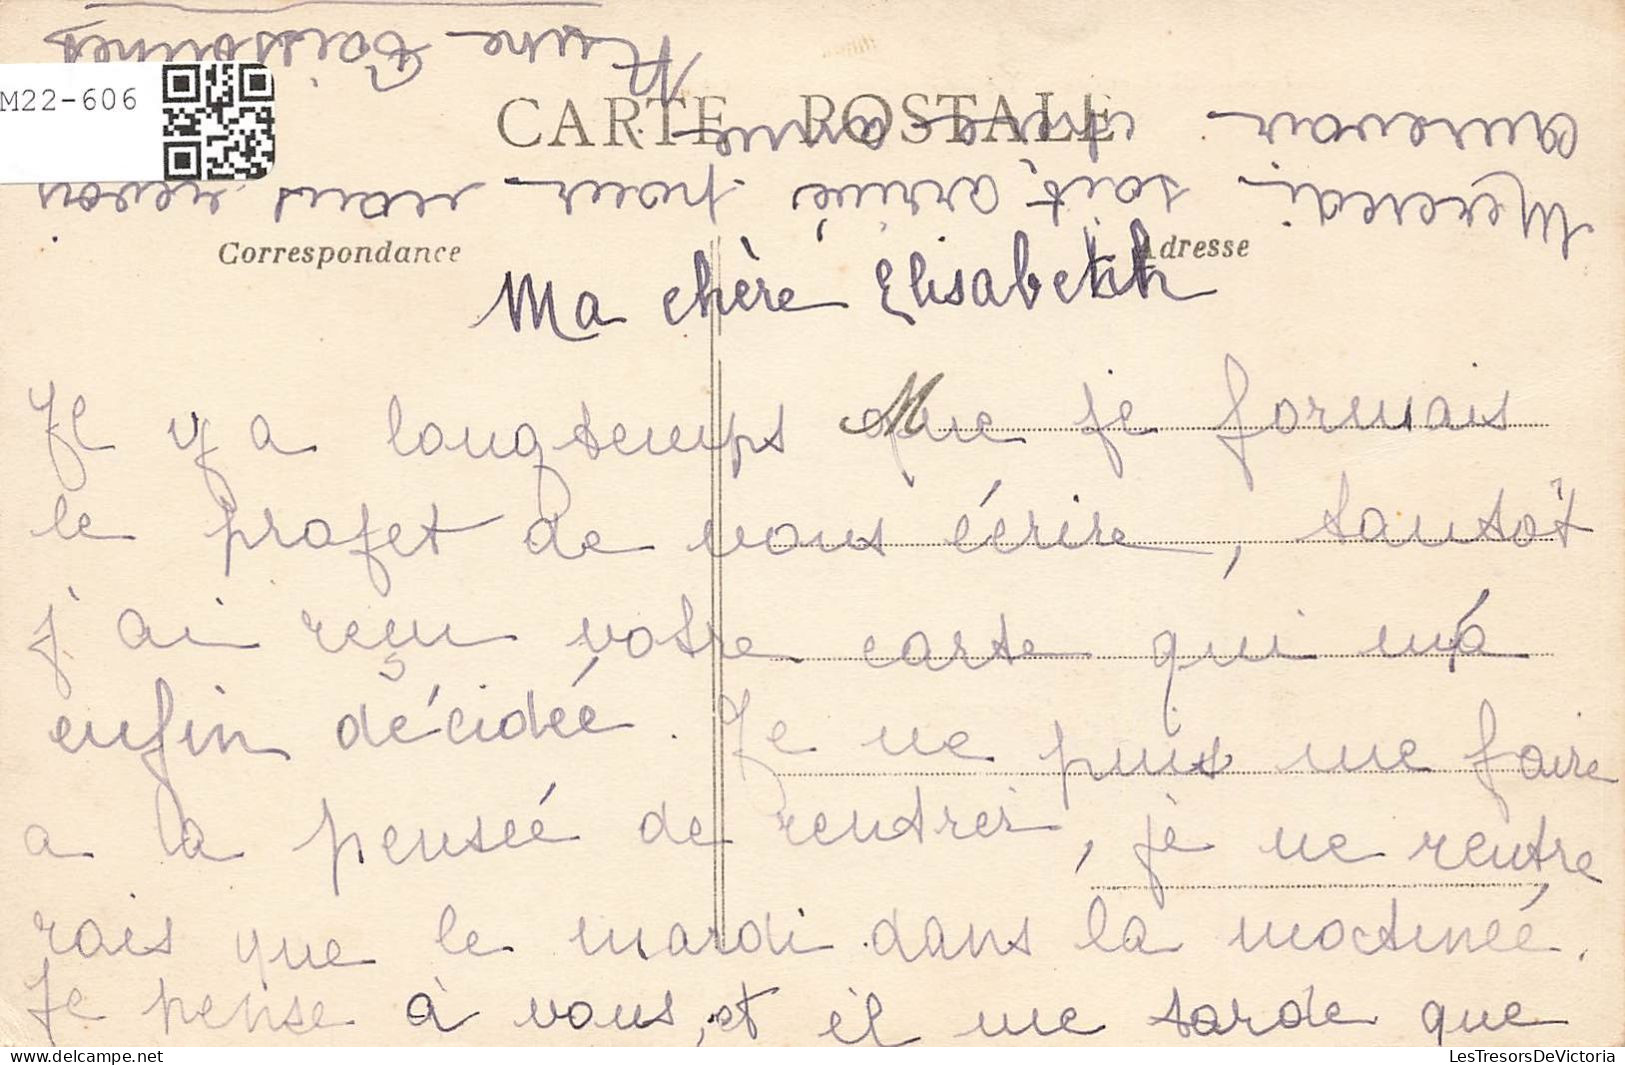 M22-606
CARTE POSTALE
Correspondance
Adresse
Ma chère Elisabeth
Il y a longtemps que je formais
le projet de vous écrire, tantôt
j'ai reçu votre carte qui m'a
enfin décidée. Je ne puis me faire
a la penseé de rentrer, je ne rentre
rais que le mardi dans la matineé.
Je pense à vous, et il me tarde que
Mercredi soit arrivé pour vous revoir
Aurevoir votre amie
LesTresorsDeVictoria